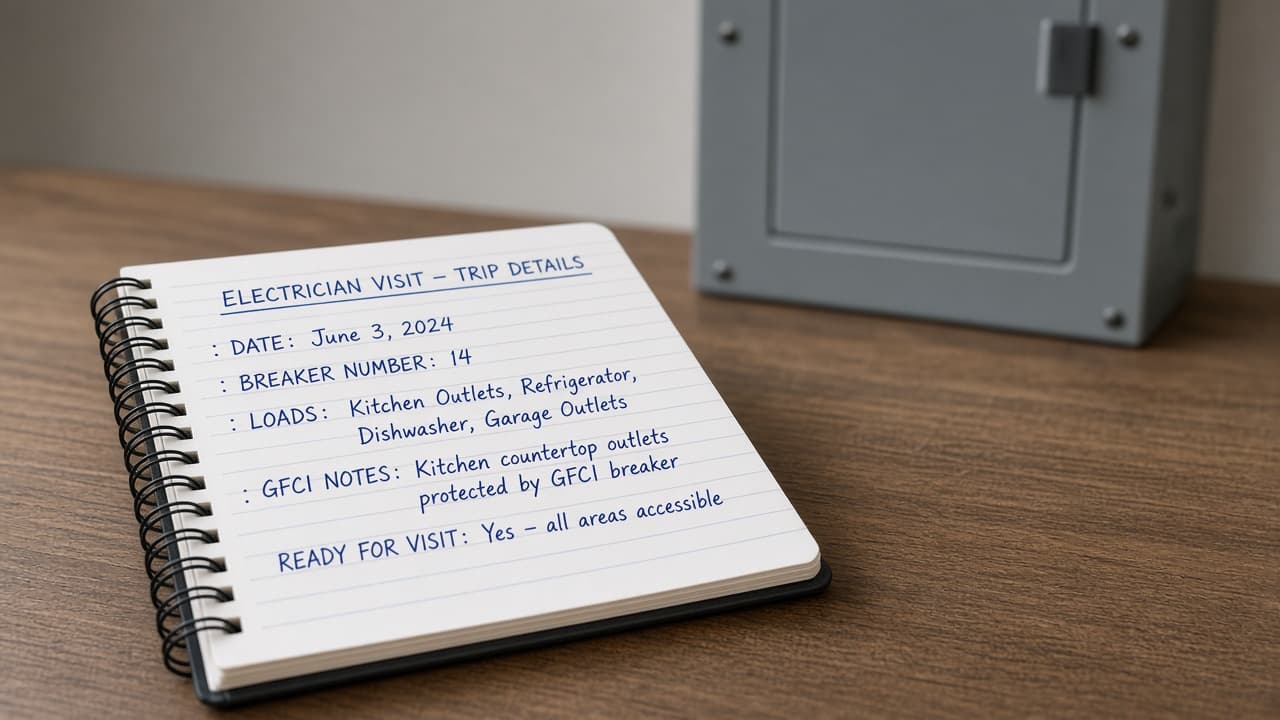 ELECTRICIAN VISIT – TRIP DETAILS
: DATE: June 3, 2024
: BREAKER NUMBER: 14
: LOADS: Kitchen Outlets, Refrigerator,
Dishwasher, Garage Outlets
: GFCI NOTES: Kitchen countertop outlets
protected by GFCI breaker
READY FOR VISIT: Yes – all areas accessible